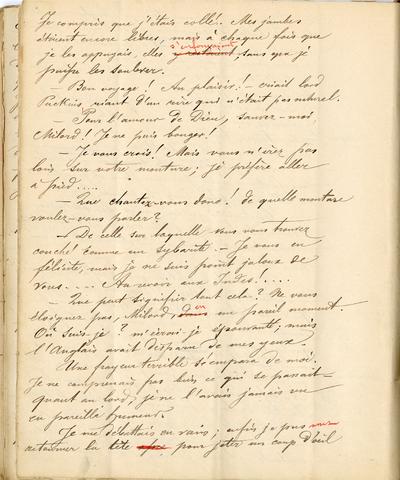 Je compris que j'étais collé. Mes jambes
étaient encore libres, mais à chaque fois que
je les appuyais, elles s'enfonçaient sans que je
puisse les soulever.
— Bon voyage! Au plaisir! — criait lord
Puckins, riant d'un rire qui n'était pas naturel.
— Pour l'amour de Dieu, sauvez-moi,
Milord! Je ne puis bouger!
— Je vous crois! Mais vous n'irez pas
loin sur votre monture; je préfère aller
à pied.....
— Que chantez-vous donc? de quelle monture
voulez-vous parler?
— De celle sur laquelle vous vous trouvez
couché comme un sybarite. — Je vous en
félicite, mais je ne suis point jaloux de
vous.... Au revoir aux Indes!....
— Que peut signifier tout cela? Ne vous
éloignez pas, Milord, en un pareil moment.
Où suis-je? m'écriai-je épouvanté, mais
l'Anglais avait disparu de mes yeux.
Une frayeur terrible s'empara de moi.
Je ne comprenais pas bien ce qui se passait —
quant au lord; je ne l'avais jamais vu
en pareille humeur.
Je me débattais en vain; enfin je pus
détourner la tête pour jeter un coup d'œil